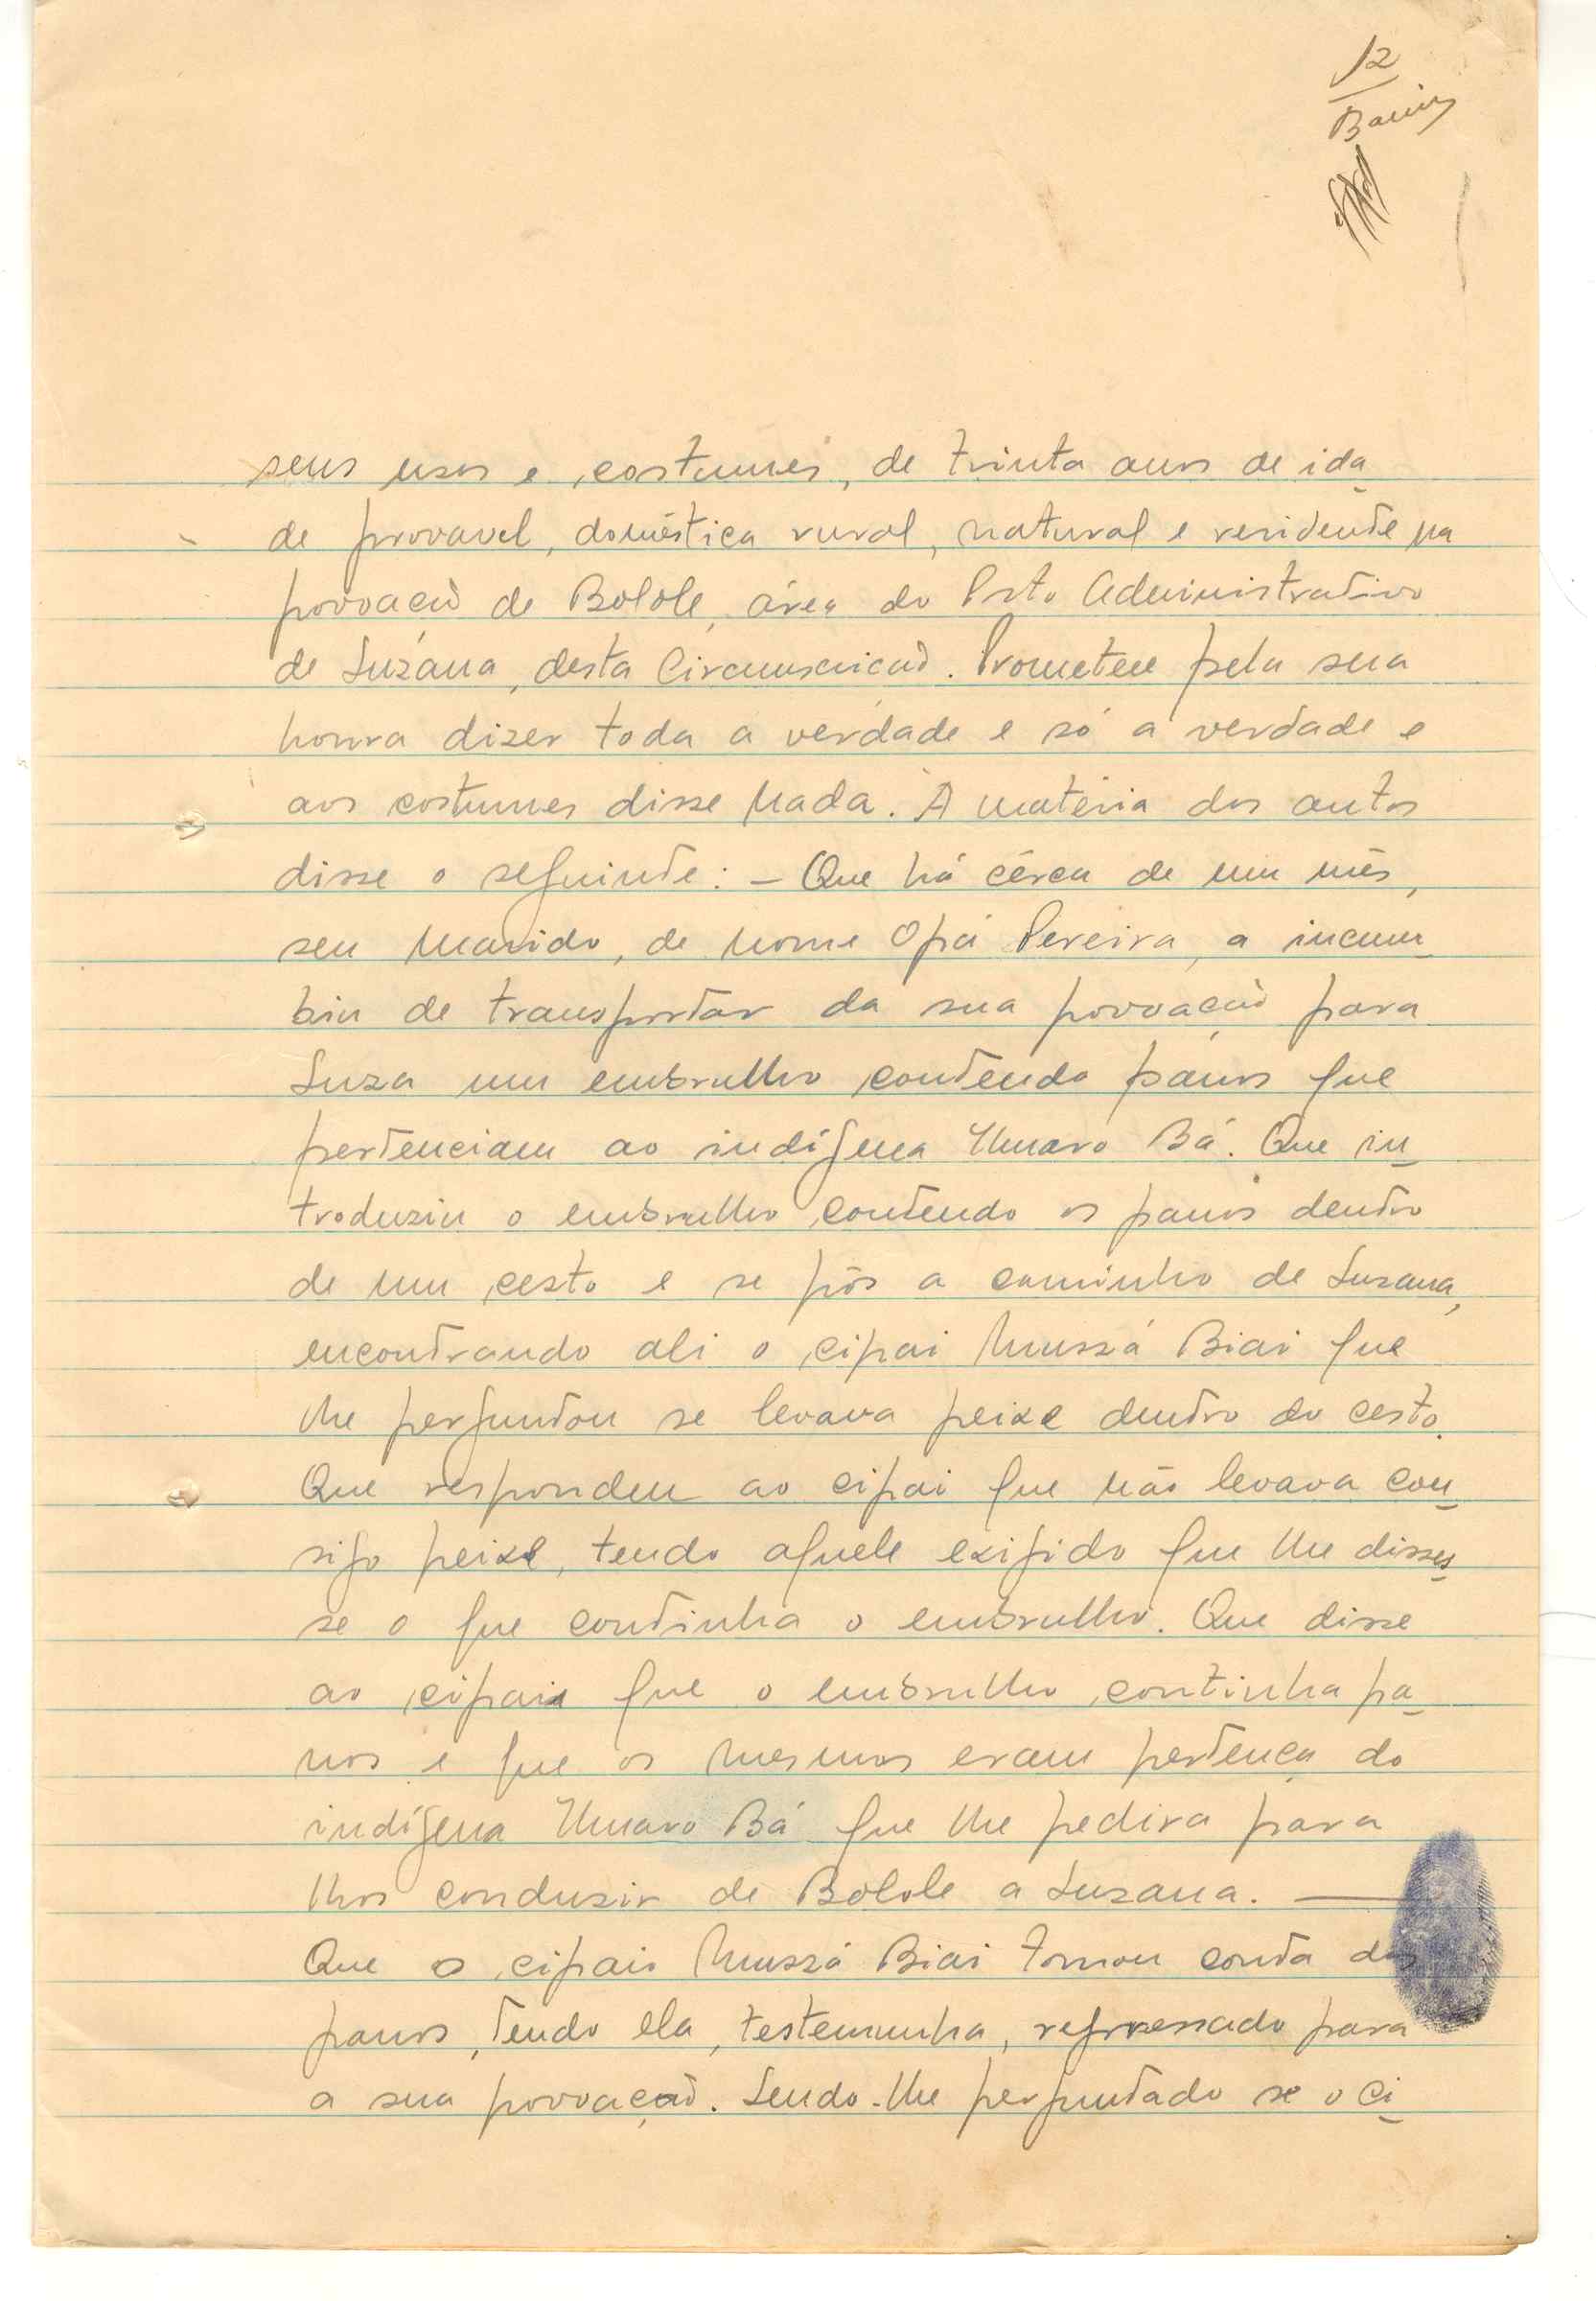 12
seus usos e costumes, de trinta anos de ida
de provavel, doméstica rural, natural e residente na
povoação de Bolole, área do Posto Administrativo
de Suzana, desta Circunscrição. Prometeu pela sua
honra dizer toda a verdade e só a verdade e
aos costumes disse nada. À matéria dos autos
disse o seguinte: - Que há cêrca de um mês,
seu marido, de nome Opá Pereira, a incum
biu de transportar da sua povoação para
Suza um embrulho contendo panos que
pertenciam ao indígena Umaro Bá. Que in
troduziu o embrulho contendo os panos dentro
de um cesto e se pôs a caminho de Suzana,
encontrando ali o cipai Mussá Biai que
lhe perguntou se levava peixe dentro do cesto.
Que respondeu ao cipai que não levava con
sigo peixe, tendo aquele exigido que lhe disses
se o que continha o embrulho. Que disse
ao cipaio que o embrulho continha pa
nos e que os mesmos eram pertença do
indígena Umaro Bá que lhe pedira para
lhos conduzir de Bolole a Suzana. —
Que o cipaio Mussá Biai tomou conta dos
panos, tendo ela, testemunha, regressado para
a sua povoação. Sendo-lhe perguntado se o ci